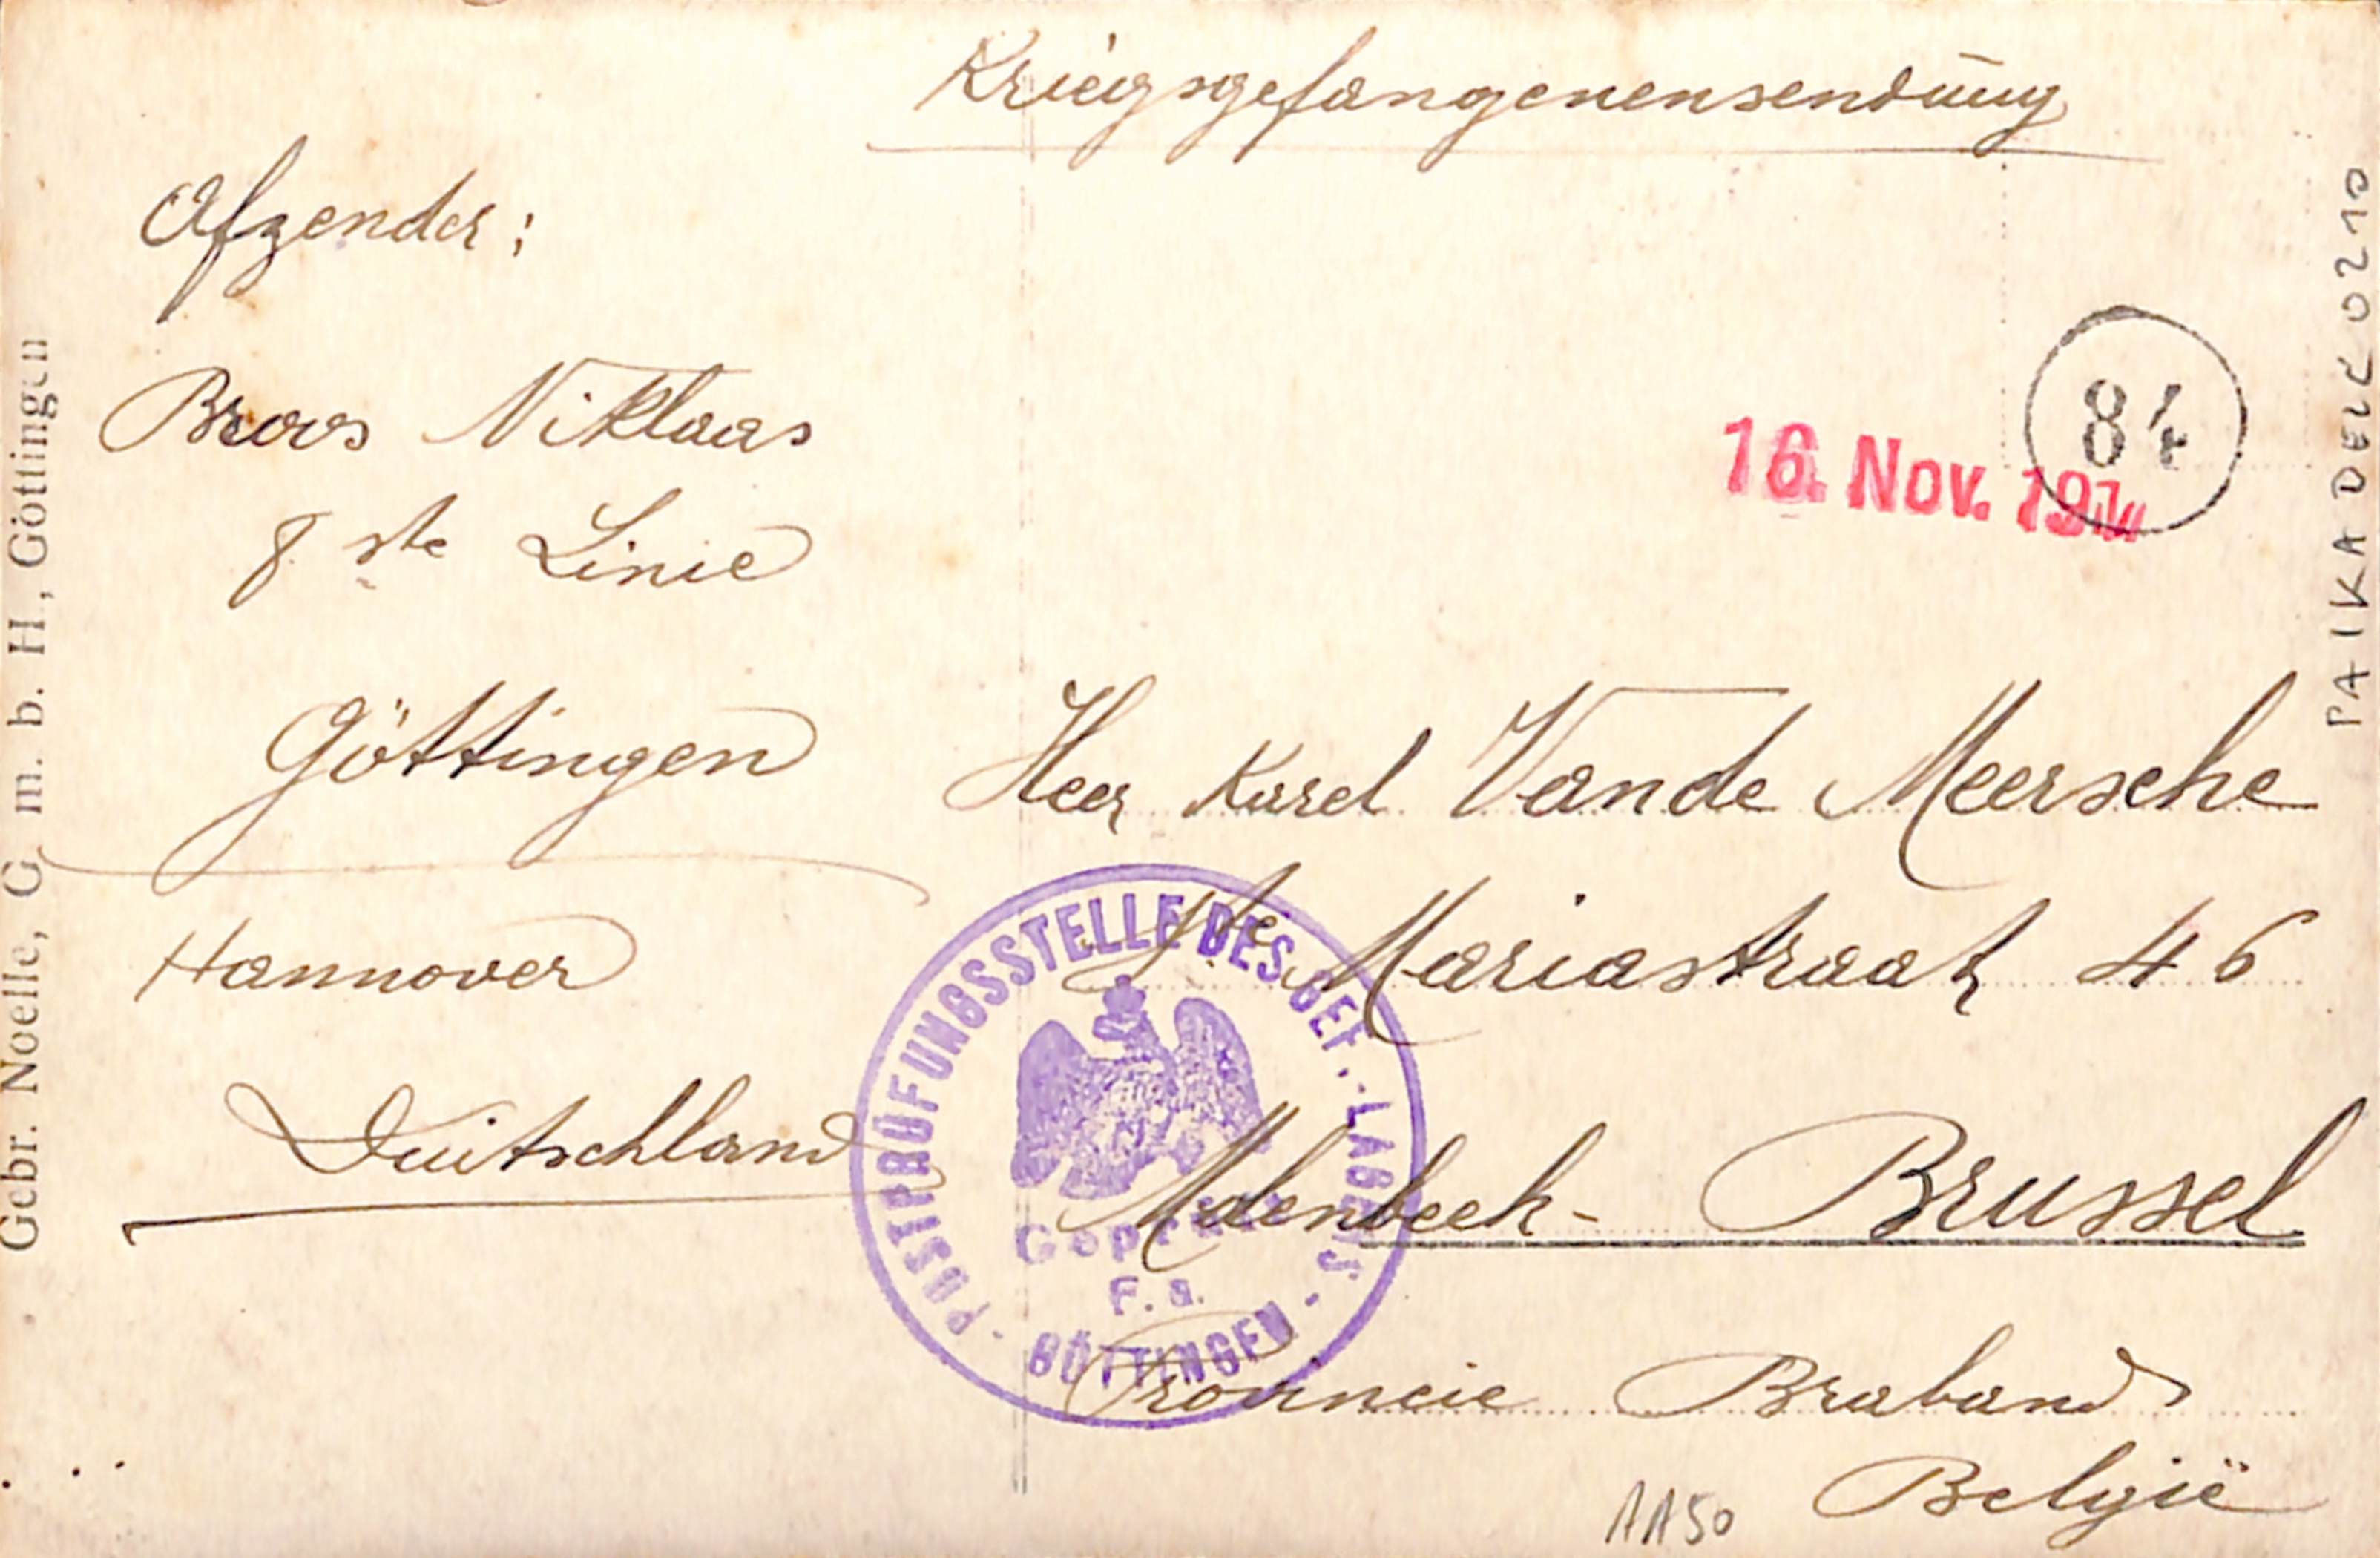 Kriegsgefangenensendung
Afzender:
Broos Niklaas
8ste Linie
Göttingen
Hannover
Duitschland
Gebr. Noelle, G. m. b. H., Göttingen
84
16. Nov. 191
PAIKADELCO210
Heer Karel Vande Meersche
Ste Mariastraat 46
Molenbeek - Brussel
Provincie Braband
België
POSTPRÜFUNGSSTELLE DES GEF.-LAGERS -
Geprüft
F. a.
GÖTTINGEN
1150